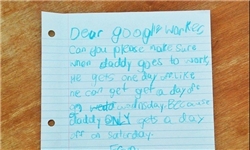 Dear google worker
Can you please make sure
when daddy goes to work,
he gets one day off. Like
he can get a day off
on wednesday. Because
daddy ONLY gets a day
off on saturday.